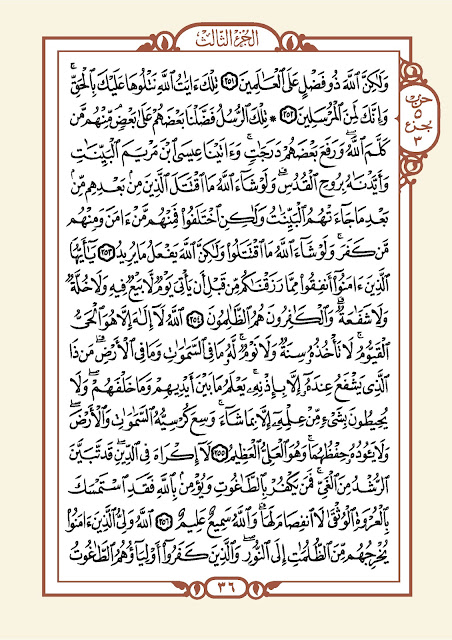 الجزء الثالث
وَلَٰكِنَّ ٱللَّهَ ذُو فَضْلٍ عَلَى ٱلْعَٰلَمِينَ ٢٥١ تِلْكَ ءَايَٰتُ ٱللَّهِ نَتْلُوهَا عَلَيْكَ بِٱلْحَقِّ ۚ
وَإِنَّكَ لَمِنَ ٱلْمُرْسَلِينَ ٢٥٢ * تِلْكَ ٱلرُّسُلُ فَضَّلْنَا بَعْضَهُمْ عَلَىٰ بَعْضٍ ۘ مِّنْهُم مَّن
كَلَّمَ ٱللَّهُ ۖ وَرَفَعَ بَعْضَهُمْ دَرَجَٰتٍ ۚ وَءَاتَيْنَا عِيسَى ٱبْنَ مَرْيَمَ ٱلْبَيِّنَٰتِ
وَأَيَّدْنَٰهُ بِرُوحِ ٱلْقُدُسِ ۗ وَلَوْ شَآءَ ٱللَّهُ مَا ٱقْتَتَلَ ٱلَّذِينَ مِنۢ بَعْدِهِم مِّنۢ
بَعْدِ مَا جَآءَتْهُمُ ٱلْبَيِّنَٰتُ وَلَٰكِنِ ٱخْتَلَفُوا۟ فَمِنْهُم مَّنْ ءَامَنَ وَمِنْهُم
مَّن كَفَرَ ۚ وَلَوْ شَآءَ ٱللَّهُ مَا ٱقْتَتَلُوا۟ وَلَٰكِنَّ ٱللَّهَ يَفْعَلُ مَا يُرِيدُ ٢٥٣ يَٰٓأَيُّهَا
ٱلَّذِينَ ءَامَنُوٓا۟ أَنفِقُوا۟ مِمَّا رَزَقْنَٰكُم مِّن قَبْلِ أَن يَأْتِىَ يَوْمٌ لَّا بَيْعٌ فِيهِ وَلَا خُلَّةٌ
وَلَا شَفَٰعَةٌ ۗ وَٱلْكَٰفِرُونَ هُمُ ٱلظَّٰلِمُونَ ٢٥٤ ٱللَّهُ لَآ إِلَٰهَ إِلَّا هُوَ ٱلْحَىُّ
ٱلْقَيُّومُ ۚ لَا تَأْخُذُهُۥ سِنَةٌ وَلَا نَوْمٌ ۚ لَّهُۥ مَا فِى ٱلسَّمَٰوَٰتِ وَمَا فِى ٱلْأَرْضِ ۗ مَن ذَا
ٱلَّذِى يَشْفَعُ عِندَهُۥٓ إِلَّا بِإِذْنِهِۦ ۚ يَعْلَمُ مَا بَيْنَ أَيْدِيهِمْ وَمَا خَلْفَهُمْ ۖ وَلَا
يُحِيطُونَ بِشَىْءٍ مِّنْ عِلْمِهِۦٓ إِلَّا بِمَا شَآءَ ۚ وَسِعَ كُرْسِيُّهُ ٱلسَّمَٰوَٰتِ وَٱلْأَرْضَ ۖ
وَلَا يَـُٔودُهُۥ حِفْظُهُمَا ۚ وَهُوَ ٱلْعَلِىُّ ٱلْعَظِيمُ ٢٥٥ لَآ إِكْرَاهَ فِى ٱلدِّينِ ۖ قَد تَّبَيَّنَ
ٱلرُّشْدُ مِنَ ٱلْغَىِّ ۚ فَمَن يَكْفُرْ بِٱلطَّٰغُوتِ وَيُؤْمِنۢ بِٱللَّهِ فَقَدِ ٱسْتَمْسَكَ
بِٱلْعُرْوَةِ ٱلْوُثْقَىٰ لَا ٱنفِصَامَ لَهَا ۗ وَٱللَّهُ سَمِيعٌ عَلِيمٌ ٢٥٦ ٱللَّهُ وَلِىُّ ٱلَّذِينَ ءَامَنُوا۟
يُخْرِجُهُم مِّنَ ٱلظُّلُمَٰتِ إِلَى ٱلنُّورِ ۖ وَٱلَّذِينَ كَفَرُوٓا۟ أَوْلِيَآؤُهُمُ ٱلطَّٰغُوتُ
حزب
٥
جزء
٣
٣٦